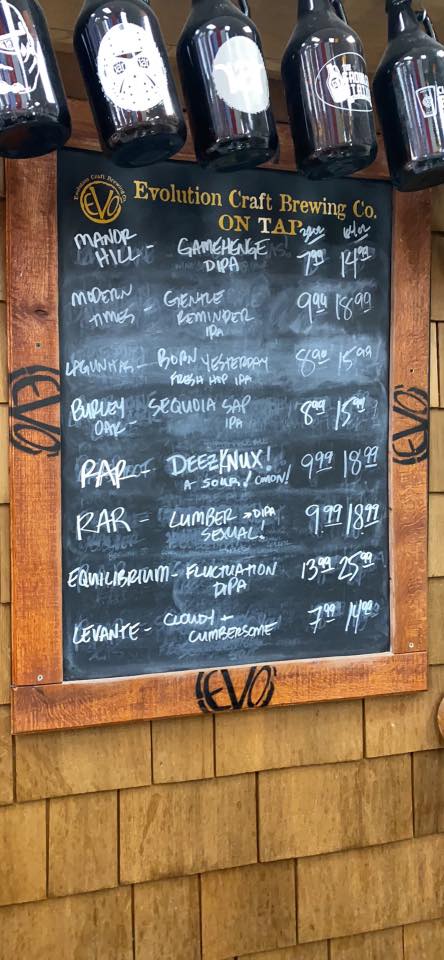 Evolution Craft Brewing Co.
EVO
Evolution Craft Brewing Co.
ON TAP
32oz 64oz
MANOR HILL - GAMEHENGE DIPA 7.99 14.99
MODERN TIMES - GENTLE REMINDER IPA 9.99 18.99
LAGUNITAS - BORN YESTERDAY FRESH HOP IPA 8.99 15.99
BURLEY OAK - SEQUOIA SAP IPA 8.99 15.99
RAR - DEEZ/NUX! A SOUR/COMON! 9.99 18.99
RAR - LUMBER SEXUAL! DIPA 9.99 18.99
EQUILIBRIUM - FLUCTUATION DIPA 13.99 25.99
LEVANTE - CLOUDY + CUMBERSOME 7.99 14.99
EVO
EVO
EVO